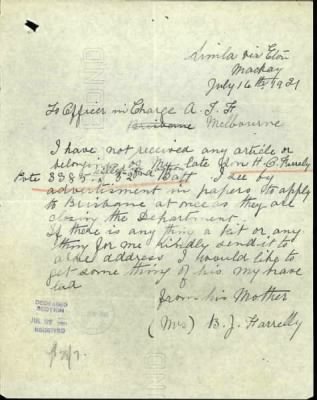 Simla via Eton
Mackay
July 16th 1921
To Officer in Charge A. I. F
Brisbane Melbourne
I have not received any article or
belong of My late Son H. C. Farrelly
Pote 3385 - 42nd Batt. I see by
advertisment in papers to apply
to Brisbane at once as they are
closing the Department.
If there is any thin a kit or any
thing for me kindly send it to
above address I would like to
get some thing of his my brave
lad
from his Mother
(Mrs) B. J. Farrelly
DECEASED
SECTION
JUL 1921
RECEIVED